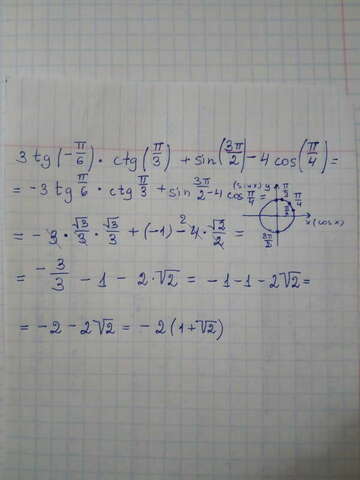 3 tg(-π/6) · ctg(π/3) + sin(3π/2) - 4 cos(π/4) =
= -3 tg π/6 · ctg π/3 + sin 3π/2 - 4 cos π/4 =
(sinx) y π/2
π/4
x (cosx)
3π/2
= -3 · √3/3 · √3/3 + (-1) - 4 · √2/2 =
2
= -3/3 - 1 - 2·√2 = -1-1-2√2 =
= -2-2√2 = -2(1+√2)